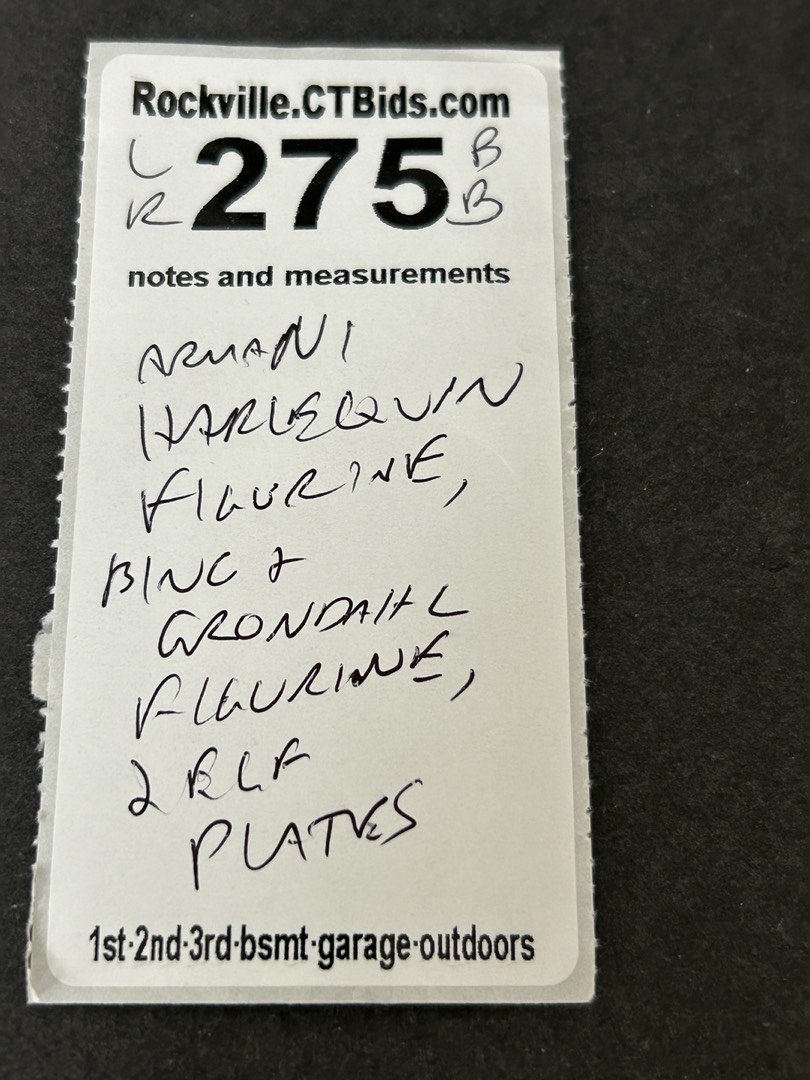 Rockville.CTBids.com
L 275 B
R B
notes and measurements
ARMANI
HARLEQUIN
FIGURINE,
BING &
GRONDAHL
FIGURINE,
2 ELF
PLATES
1st·2nd·3rd·bsmt·garage·outdoors